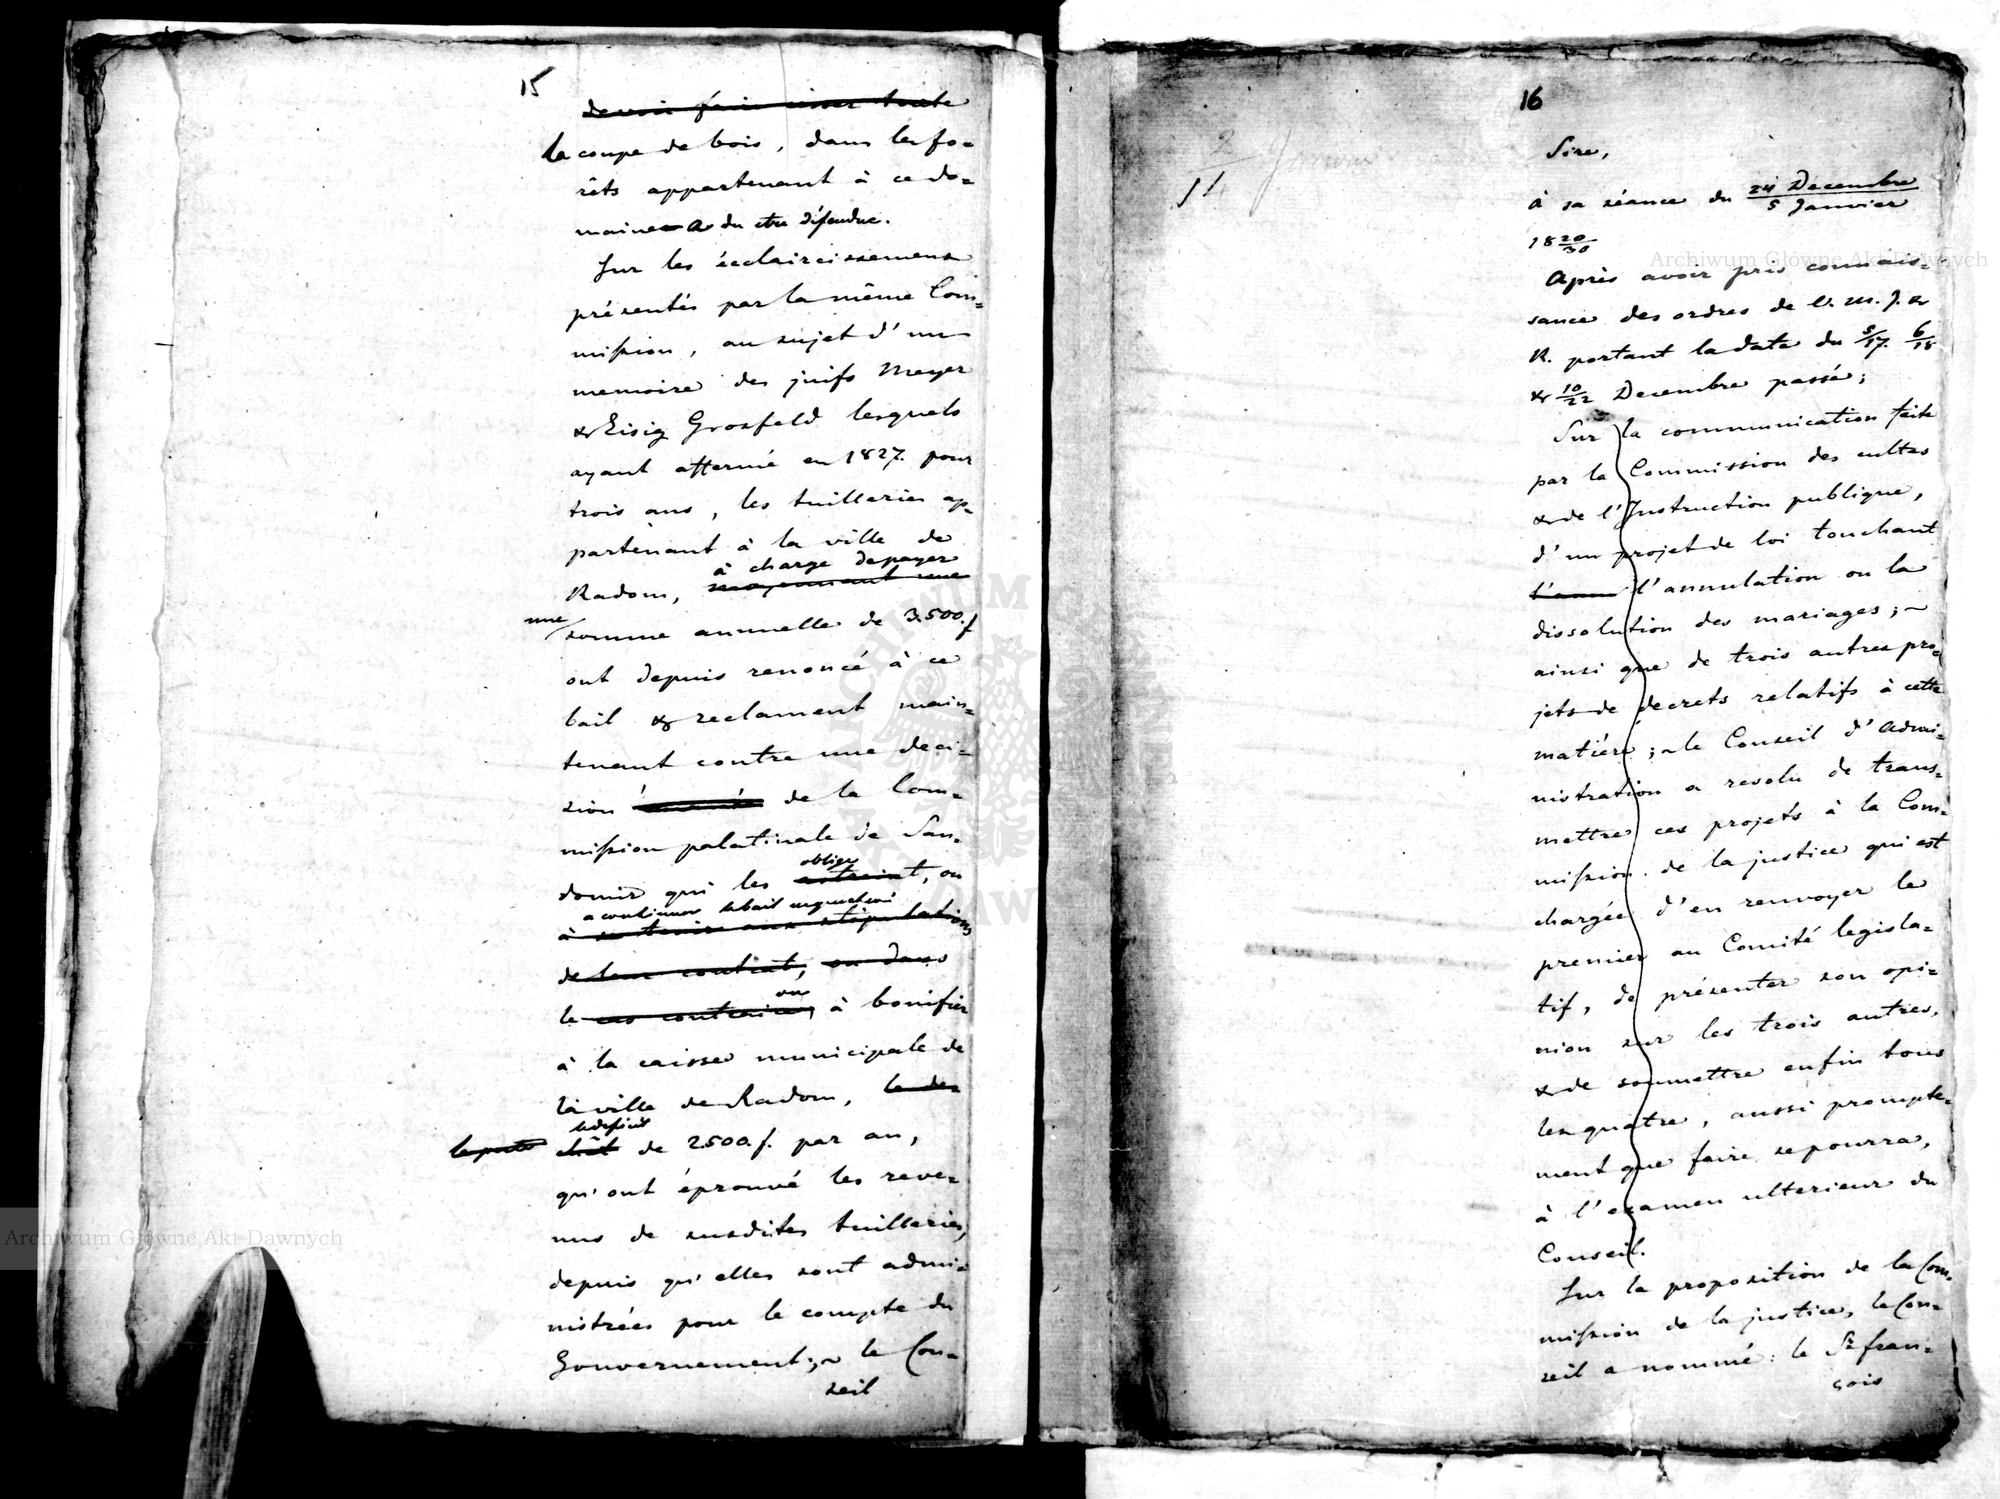 15
devoir faire cesser toute
la coupe de bois, dans les fo=
rêts appartenant à ce do=
maine a du etre défendue.
Sur les écclaircissemens
présentés par la même Com=
mission, au sujet d'un
memoire des juifs Meyer
& Eisig Grosfeld lesquels
ayant affermé en 1827. pour
trois ans, les tuilleries ap=
partenant à la ville de
à charge de payer
Radom, moyennant une
une
somme annuelle de 3.500.f
ont depuis renoncé à ce
bail & reclament main=
tenant contre une deci=
sion de la Com=
mission palatinale de San=
oblige
domir qui les astreint, ou
a continuer le bail en question
à se tenir aux stipulations
de leur contrat, ou dans
ou
le cas contraire, à bonifier
à la caisse municipale de
la ville de Radom, le de=
le deficit
chêt de 2500.f. par an,
qu'ont éprouvé les reve=
nus de susdites tuilleries,
depuis qu'elles sont admi=
nistrées pour le compte du
Gouvernement; ~ le Con=
seil
16
2/14 Janvier
Sire,
à sa séance du 24 Decembre/5 Janvier
18 29/30
Après avoir pris connais=
sance des ordres de V. M. J. &
R. portant la date du 5/17. 6/18
& 10/22 Decembre passé;
Sur la communication faite
par la Commission des cultes
& de l'Instruction publique,
d'un projet de loi touchant
l'annu l'annulation ou la
dissolution des mariages; ~
ainsi que de trois autres pro=
jets de decrets relatifs à cette
matière; ~ le Conseil d'Admi=
nistration a resolu de trans=
mettre ces projets à la Com=
mission de la justice qui est
chargée d'en renvoyer le
premier au Comité legisla=
tif, de présenter son opi=
nion sur les trois autres,
& de soumettre enfin tous
les quatre, aussi prompte=
ment que faire se pourra,
à l'examen ulterieur du
Conseil.
Sur la proposition de la Com=
mission de la justice, le Con=
seil a nommé: le Sr. fran=
çois
Archiwum Główne Akt Dawnych
Archiwum Główne Akt Dawnych